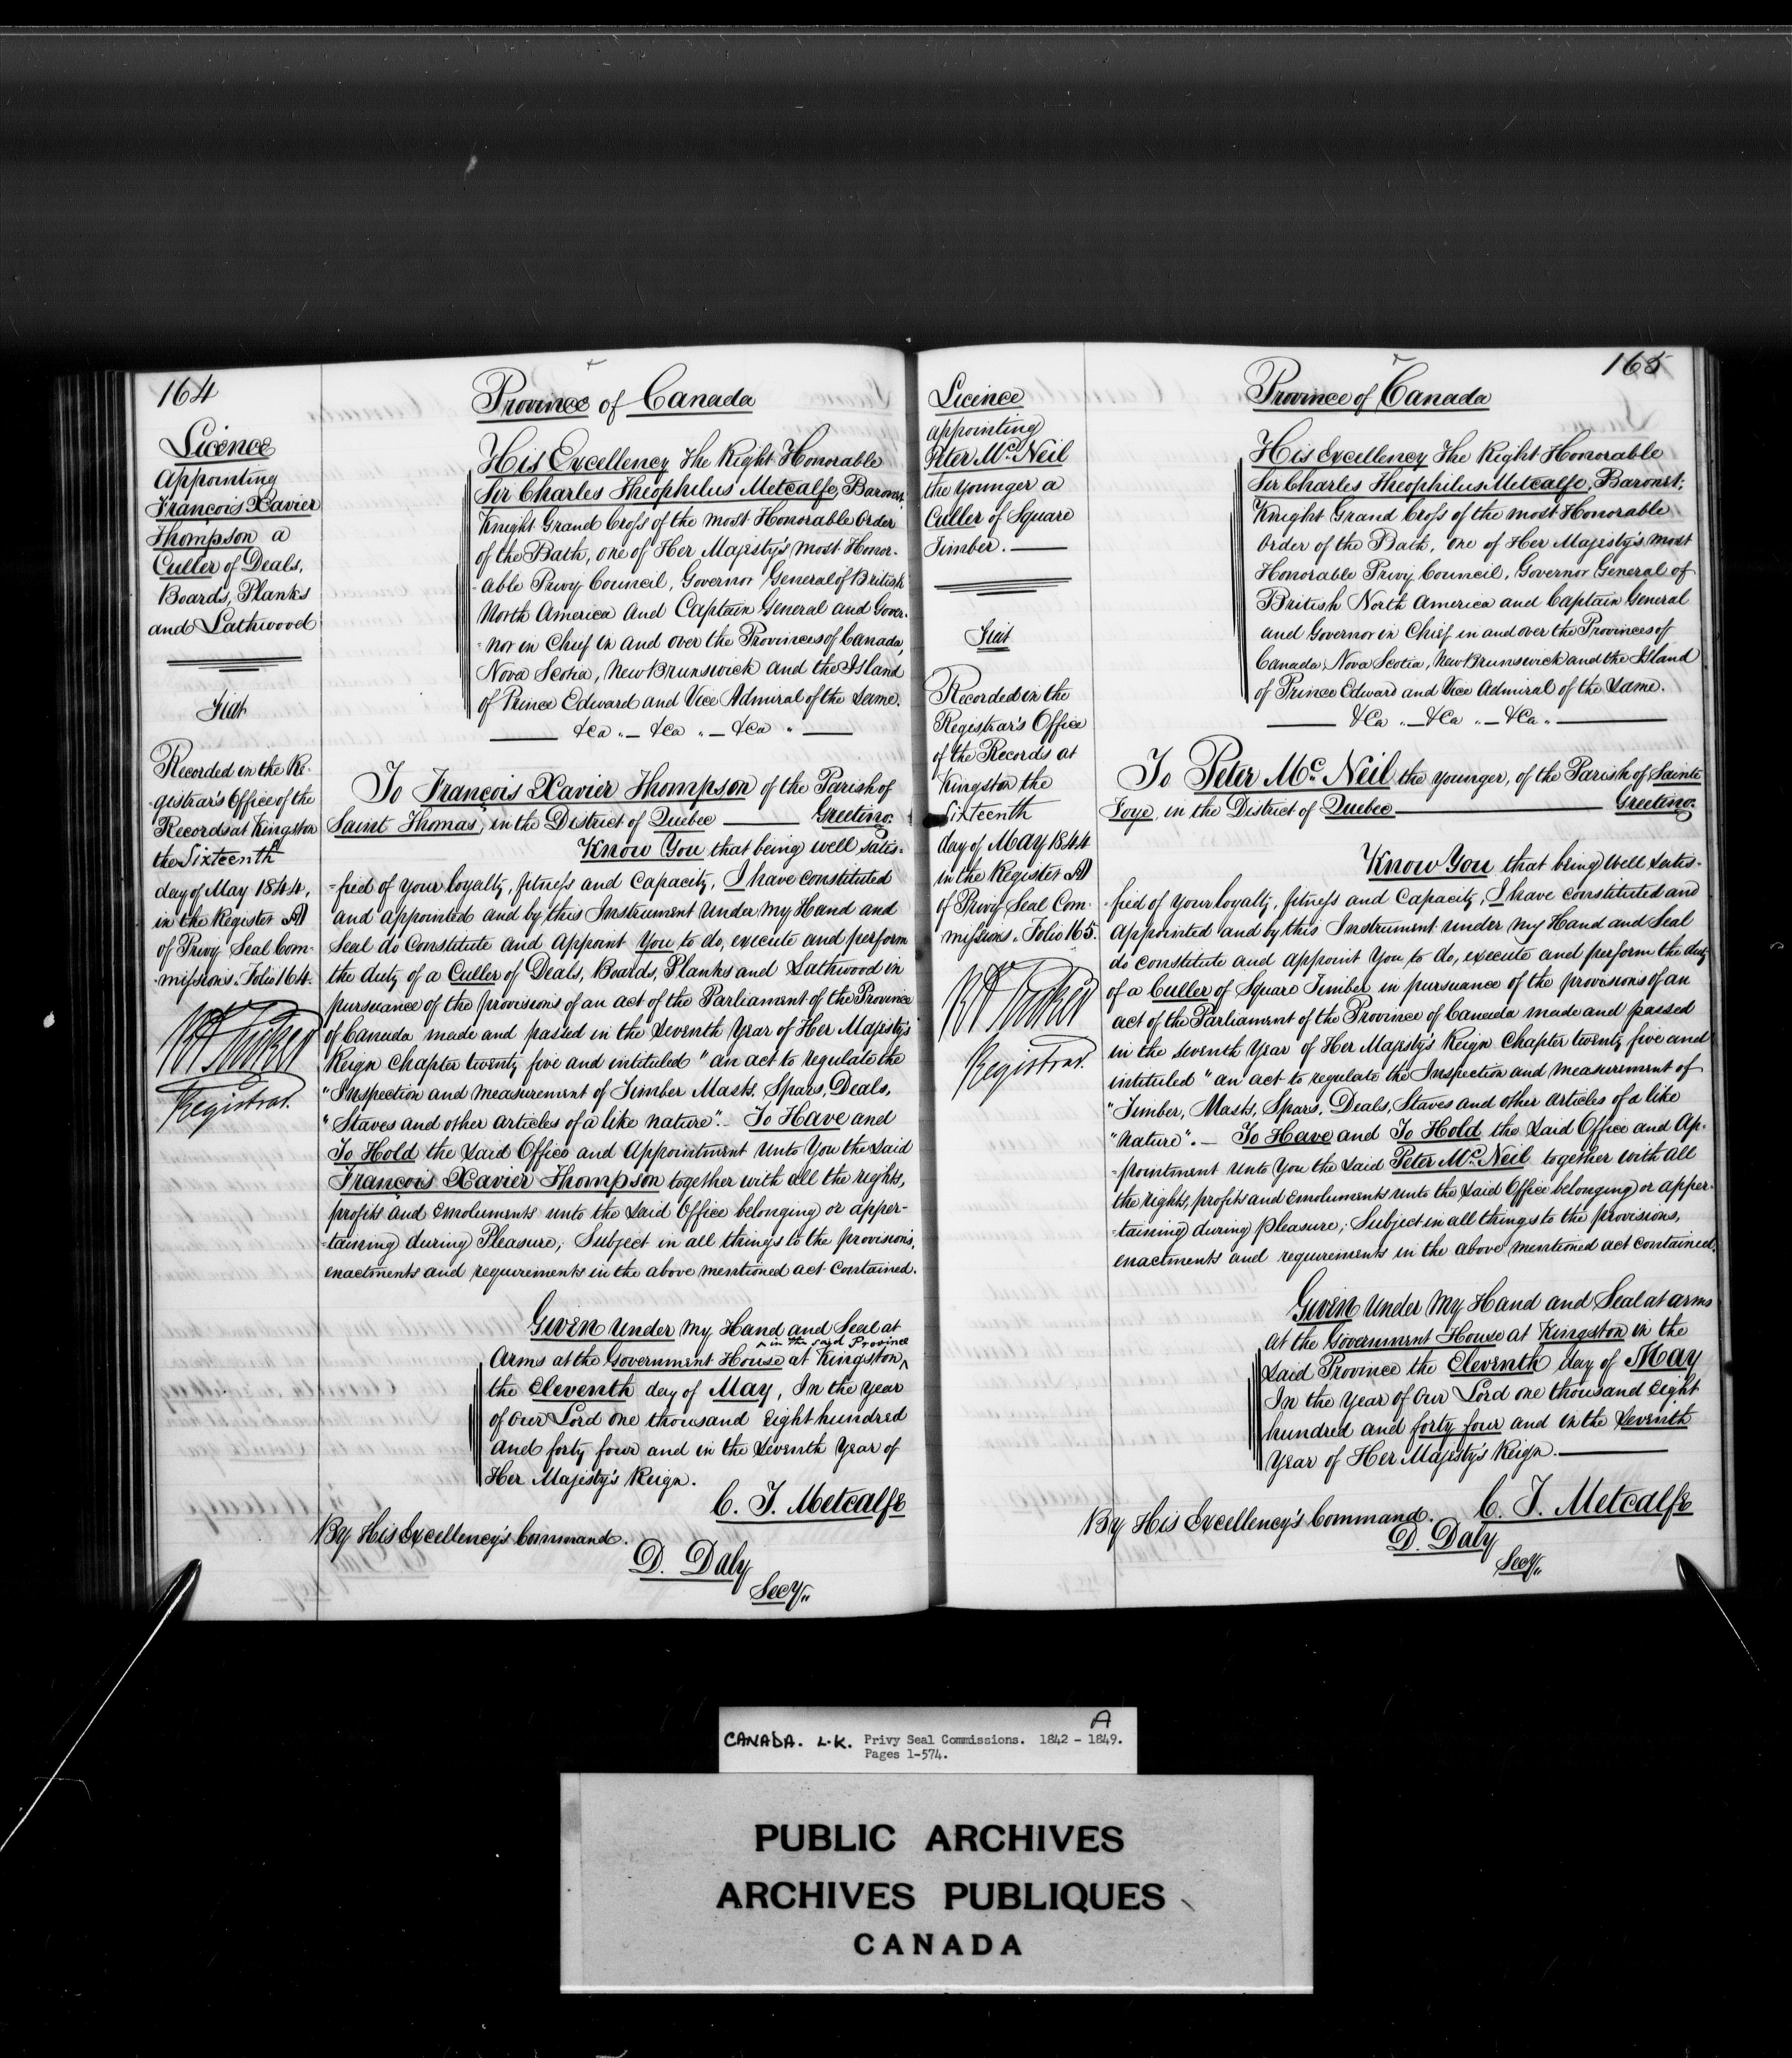 164
Licence
Appointing
François Xavier
Thompson a
Culler of Deals,
Boards, Planks
and Lathwood
Fiat
Recorded in the Re-
-gistrar's Office of the
Records at Kingston
the Sixteenth
day of May 1844,
in the Register A
of Privy Seal Com-
-missions. Folio 164.
Registrar.
Province of Canada
His Excellency The Right Honorable
Sir Charles Theophilus Metcalfe, Baronet,
Knight Grand Cross of the most Honorable Order
of the Bath, one of Her Majesty's most Honor-
-able Privy Council, Governor General of British
North America and Captain General and Gover-
-nor in Chief in and over the Provinces of Canada,
Nova Scotia, New Brunswick and the Island
of Prince Edward and Vice Admiral of the Same.
&Ca „ — &Ca „ — &Ca „
To François Xavier Thompson of the Parish of
Saint Thomas, in the District of Quebec — Greeting:
Know You that being well satis-
-fied of your loyalty, fitness and Capacity, I have constituted
and appointed and by this Instrument Under My Hand and
Seal do Constitute and Appoint You to do, execute and perform
the duty of a Culler of Deals, Boards, Planks and Lathwood in
pursuance of the provisions of an act of the Parliament of the Province
of Canada made and passed in the Seventh Year of Her Majesty's
Reign Chapter twenty five and intituled "an act to regulate the
"Inspection and measurement of Timber Masts, Spars, Deals,
"Staves and other articles of a like nature". — To Have and
To Hold the Said Office and Appointment Unto You the Said
François Xavier Thompson together with all the rights,
profits and Emoluments unto the Said Office belonging or apper-
-taining during Pleasure; Subject in all things to the provisions,
enactments and requirements in the above mentioned act Contained.
Given Under My Hand and Seal at
in the said Province
Arms at the Government House at Kingston,
the Eleventh day of May, In the Year
of Our Lord one thousand Eight hundred
and forty four and in the Seventh Year of
Her Majesty's Reign.
C. T. Metcalfe
By His Excellency's Command.
D. Daly
Secy„
165
Licence
appointing
Peter Mc. Neil
the Younger a
Culler of Square
Timber. —
Fiat
Recorded in the
Registrar's Office
of the Records at
Kingston the
Sixteenth
day of May 1844
in the Register A
of Privy Seal Com-
missions. Folio 165.
Registrar.
Province of Canada
His Excellency The Right Honorable
Sir Charles Theophilus Metcalfe, Baronet,
Knight Grand Cross of the most Honorable
Order of the Bath, one of Her Majesty's most
Honorable Privy Council, Governor General of
British North America and Captain General
and Governor in Chief in and over the Provinces of
Canada, Nova Scotia, New Brunswick and the Island
of Prince Edward and Vice Admiral of the Same.
&Ca „ — &Ca „ — &Ca „
To Peter Mc. Neil the younger, of the Parish of Sainte
Foye, in the District of Quebec — Greeting:
Know You that being Well Satis-
-fied of your loyalty, fitness and Capacity, I have constituted and
appointed and by this Instrument under my Hand and Seal
do constitute and appoint You to do, execute and perform the duty
of a Culler of Square Timber in pursuance of the provisions of an
act of the Parliament of the Province of Canada made and passed
in the Seventh Year of Her Majesty's Reign Chapter twenty five and
intituled "an act to regulate the Inspection and measurement of
"Timber, Masts, Spars, Deals, Staves and other articles of a like
"nature". — To Have and To Hold the Said Office and Ap-
-pointment Unto You the Said Peter Mc. Neil together with all
the rights, profits and Emoluments unto the Said Office belonging or apper-
-taining during pleasure; Subject in all things to the provisions,
enactments and requirements in the above mentioned act contained.
Given Under My Hand and Seal at arms
at the Government House at Kingston in the
Said Province the Eleventh day of May
In the Year of Our Lord one thousand Eight
hundred and forty four and in the Seventh
Year of Her Majesty's Reign. —
C. T. Metcalfe
By His Excellency's Command.
D. Daly
Secy„
A
CANADA. L.K. Privy Seal Commissions. 1842 - 1849.
Pages 1-574.
PUBLIC ARCHIVES
ARCHIVES PUBLIQUES
CANADA